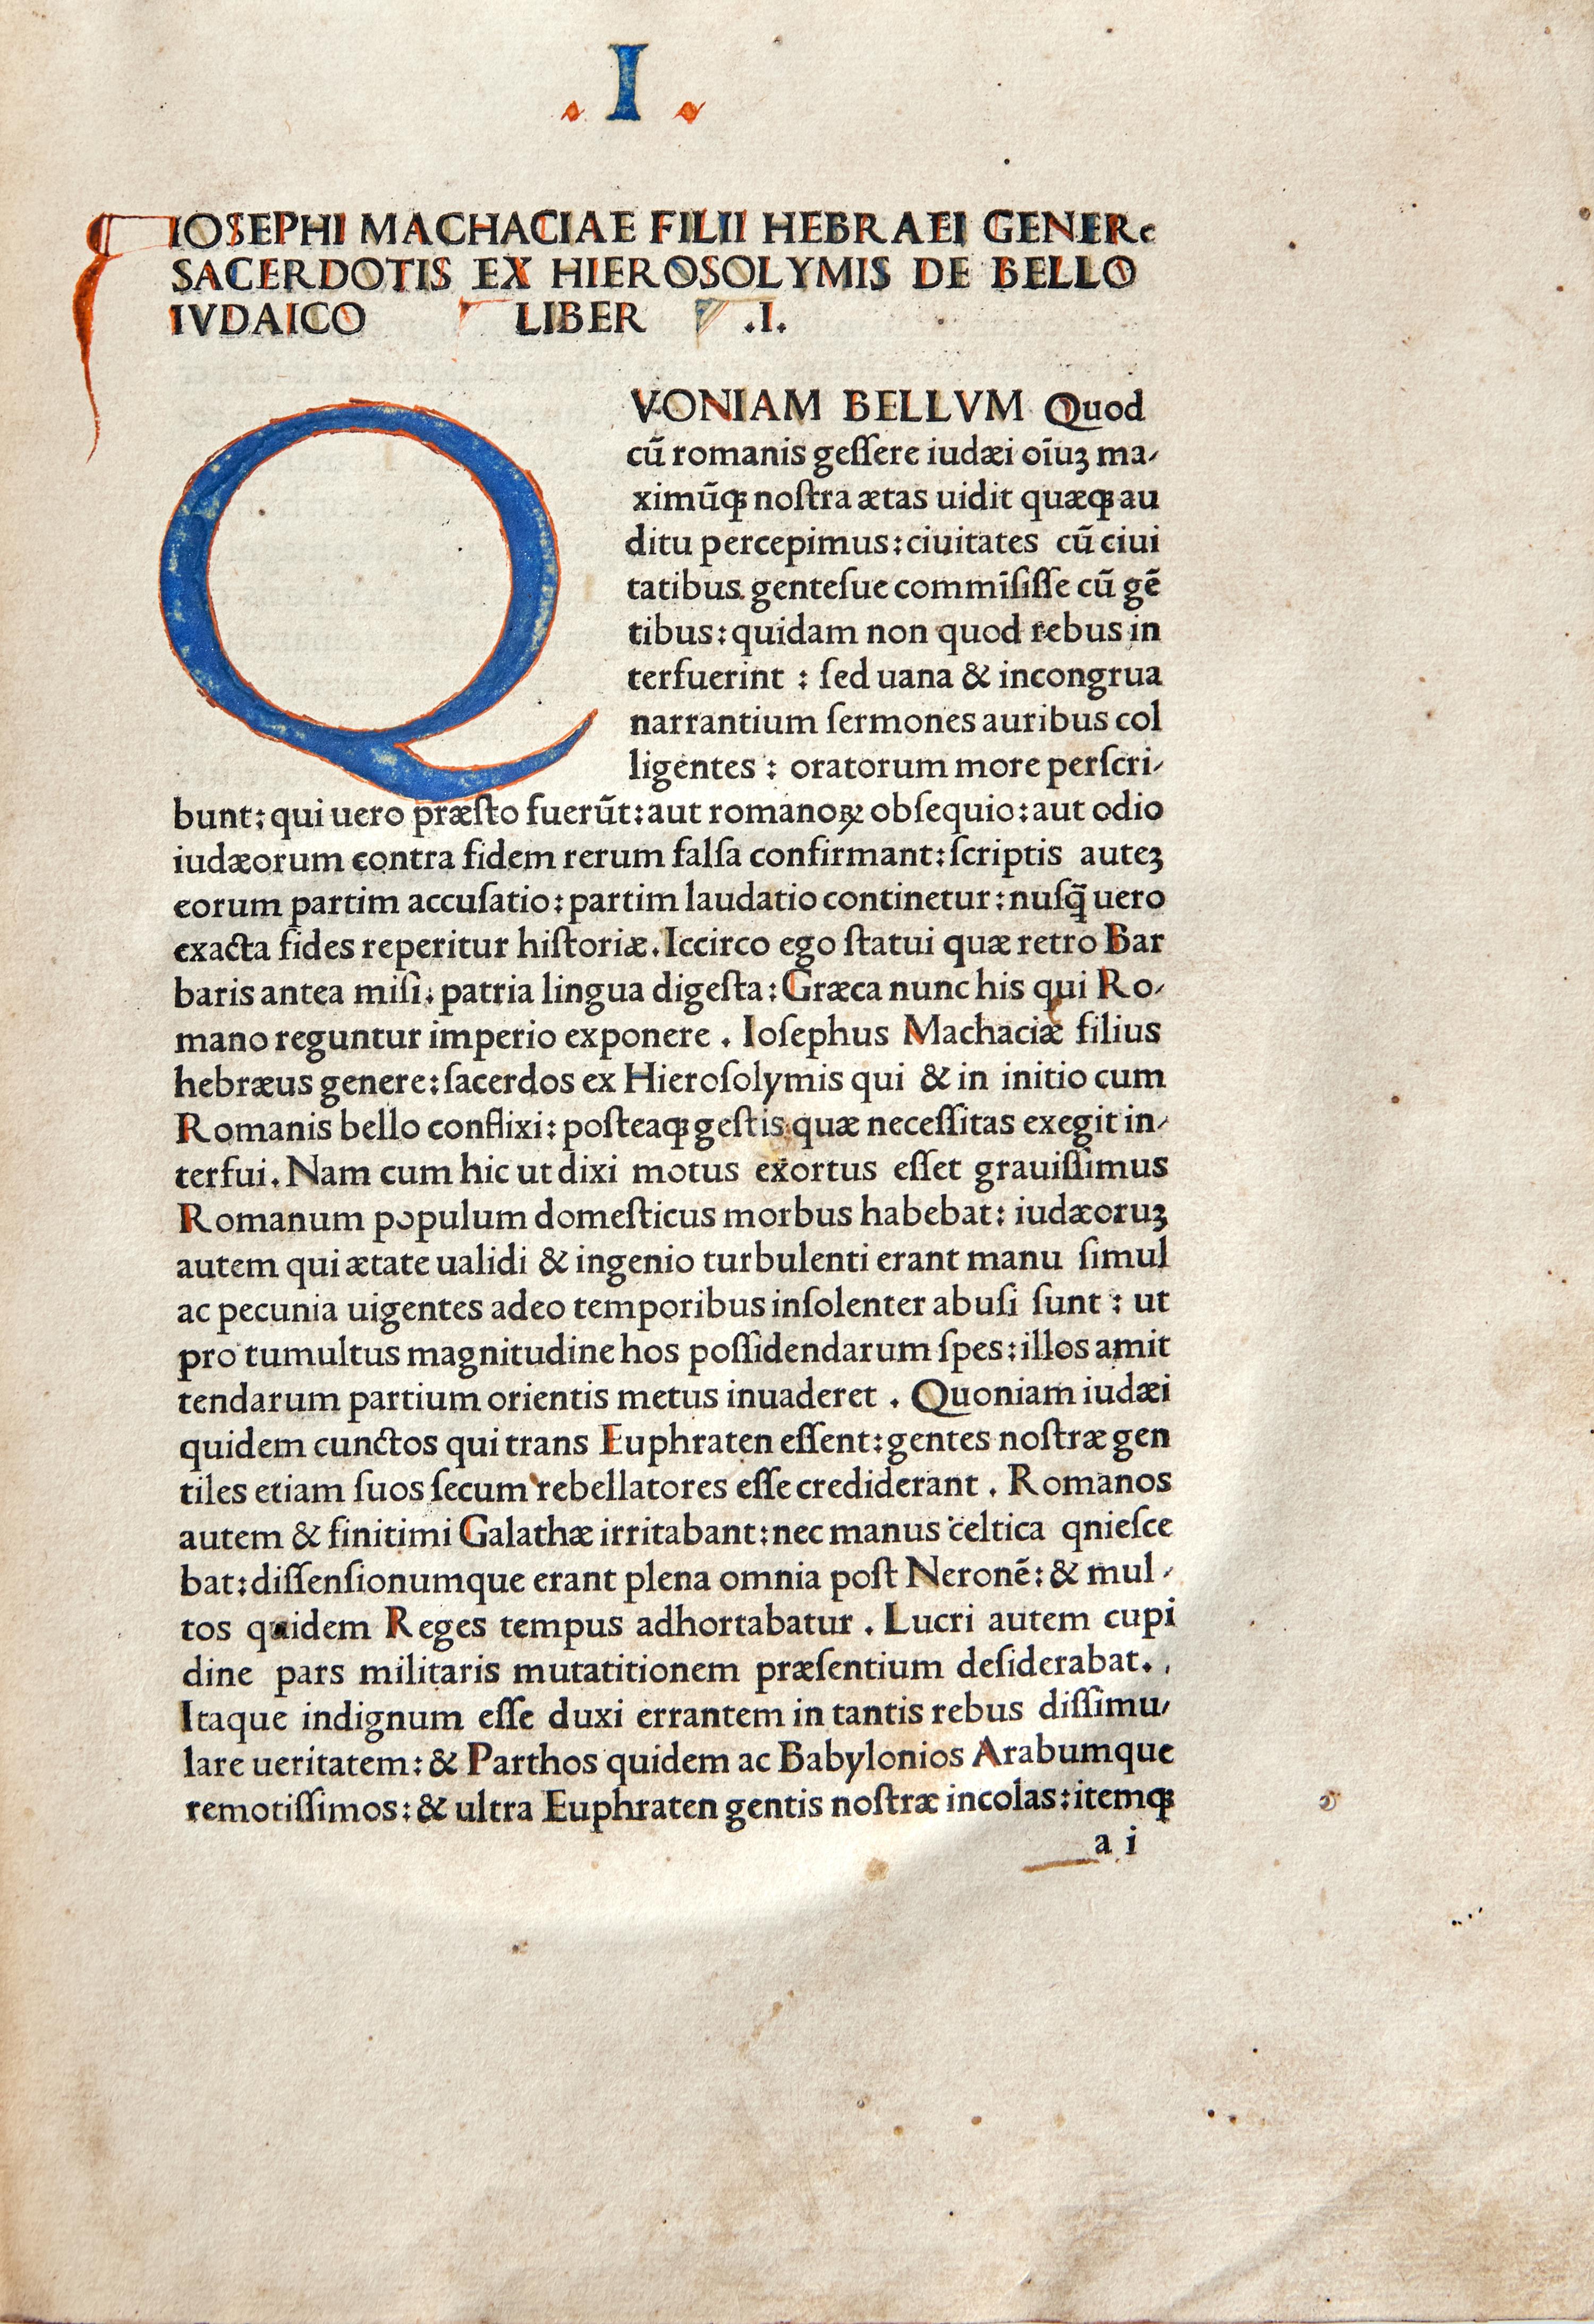 . I .
IOSEPHI MACHACIAE FILII HEBRAEI GENERe
SACERDOTIS EX HIEROSOLYMIS DE BELLO
IVDAICO LIBER .I.
QVONIAM BELLVM Quod
cū romanis geſſere iudæi oīuꝫ ma⸗
ximūqꝫ noſtra ætas uidit quæqꝫ au
ditu percepimus:ciuitates cū ciui
tatibus. genteſue commīſiſſe cū gē
tibus:quidam non quod rebus in
terfuerint : ſed uana & incongrua
narrantium ſermones auribus col
ligentes : oratorum more perſcri⸗
bunt:qui uero præſto fuerūt:aut romanoꝝ obſequio:aut odio
iudæorum contra fidem rerum falſa confirmant:ſcriptis auteꝫ
eorum partim accuſatio:partim laudatio continetur:nuſq̄ uero
exacta fides reperitur hiſtoriæ.Iccirco ego ſtatui quæ retro Bar
baris antea miſi. patria lingua digeſta:Græca nunc his qui Ro⸗
mano reguntur imperio exponere . Ioſephus Machaciæ filius
hebræus genere:ſacerdos ex Hieroſolymis qui & in initio cum
Romanis bello conflixi:poſteaqꝫ geſtis quæ neceſſitas exegit in⸗
terfui.Nam cum hic ut dixi motus exortus eſſet grauiſſimus
Romanum populum domeſticus morbus habebat: iudæoruꝫ
autem qui ætate ualidi & ingenio turbulenti erant manu ſimul
ac pecunia uigentes adeo temporibus inſolenter abuſi ſunt : ut
pro tumultus magnitudine hos poſſidendarum ſpes:illos amit
tendarum partium orientis metus inuaderet . Quoniam iudæi
quidem cunctos qui trans Euphraten eſſent:gentes noſtræ gen
tiles etiam ſuos ſecum rebellatores eſſe crediderant . Romanos
autem & finitimi Galathæ irritabant:nec manus celtica qnieſce
bat:diſſenſionumque erant plena omnia poſt Neronē:& mul⸗
tos quidem Reges tempus adhortabatur . Lucri autem cupi
dine pars militaris mutatitionem præſentium deſiderabat. .
Itaque indignum eſſe duxi errantem in tantis rebus diſſimu⸗
lare ueritatem:& Parthos quidem ac Babylonios Arabumque
remotiſſimos:& ultra Euphraten gentis noſtræ incolas:itemqꝫ
a i